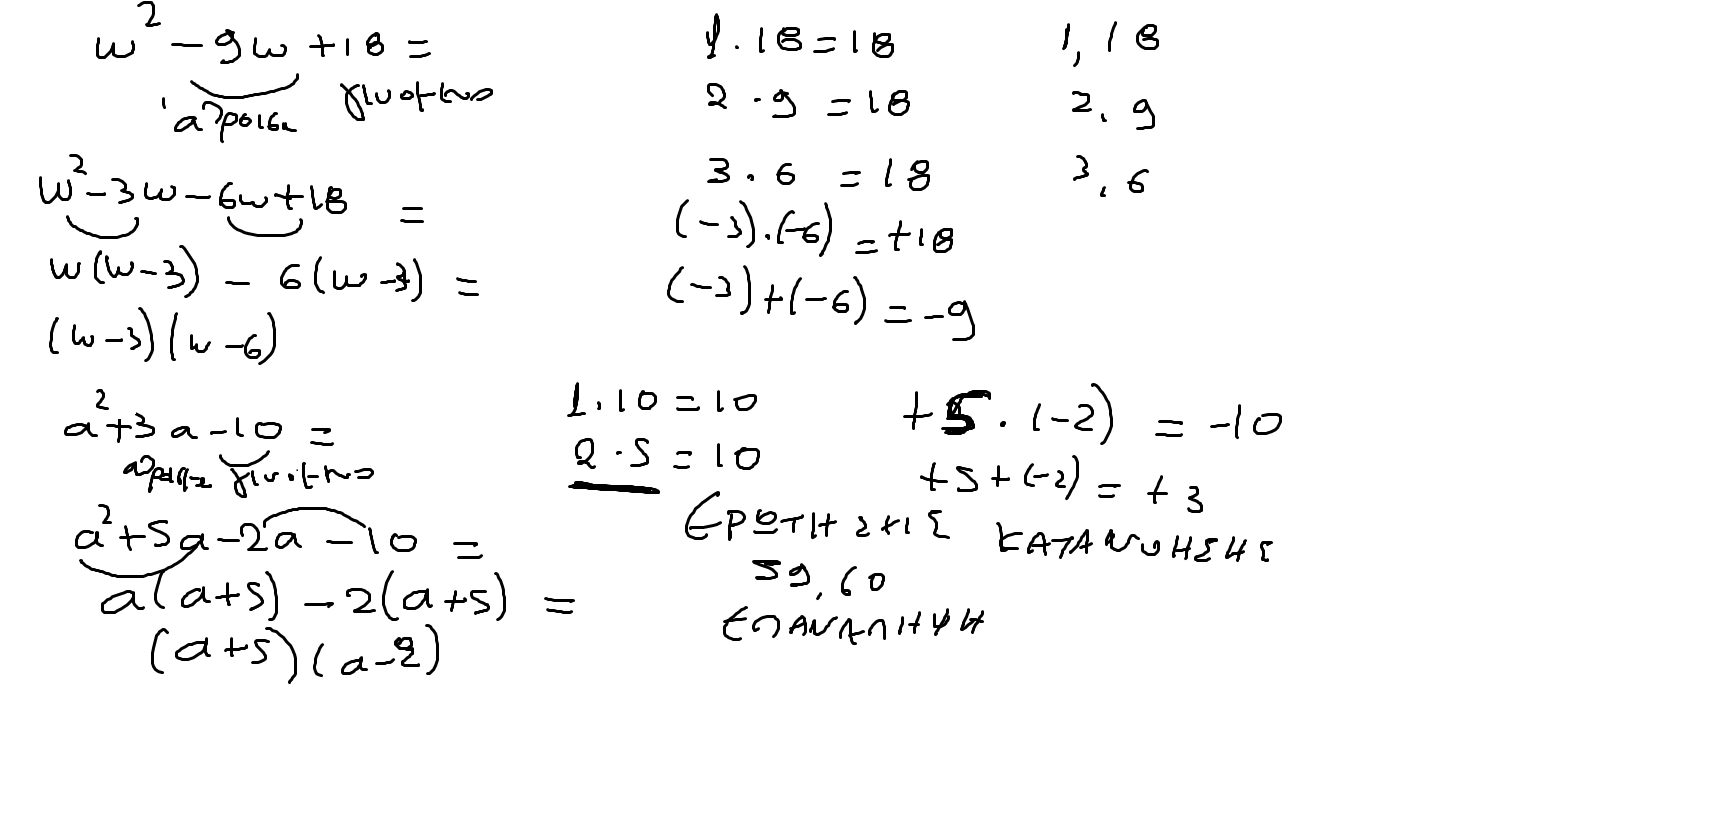 w² - 9w + 18 =
άθροισμα γινόμενο
w² - 3w - 6w + 18 =
w(w - 3) - 6(w - 3) =
(w - 3)(w - 6)
1 · 18 = 18
2 · 9 = 18
3 · 6 = 18
(-3) · (-6) = +18
(-3) + (-6) = -9
1, 18
2, 9
3, 6
a² + 3a - 10 =
γινόμενο
a² + 5a - 2a - 10 =
a(a + 5) - 2(a + 5) =
(a + 5)(a - 2)
1 · 10 = 10
2 · 5 = 10
+5 · (-2) = -10
+5 + (-2) = +3
ΕΡΩΤΗΣΕΙΣ ΚΑΤΑΝΟΗΣΗΣ
59, 60
ΕΠΑΝΑΛΗΨΗ